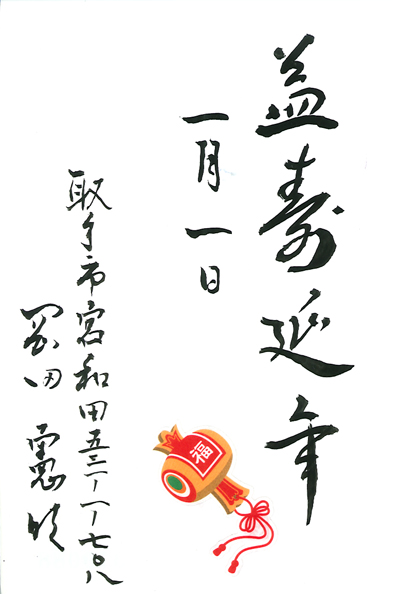 益寿延年
一月一日
取手市宮和田五三一一一七〇八
岡田憲明
福